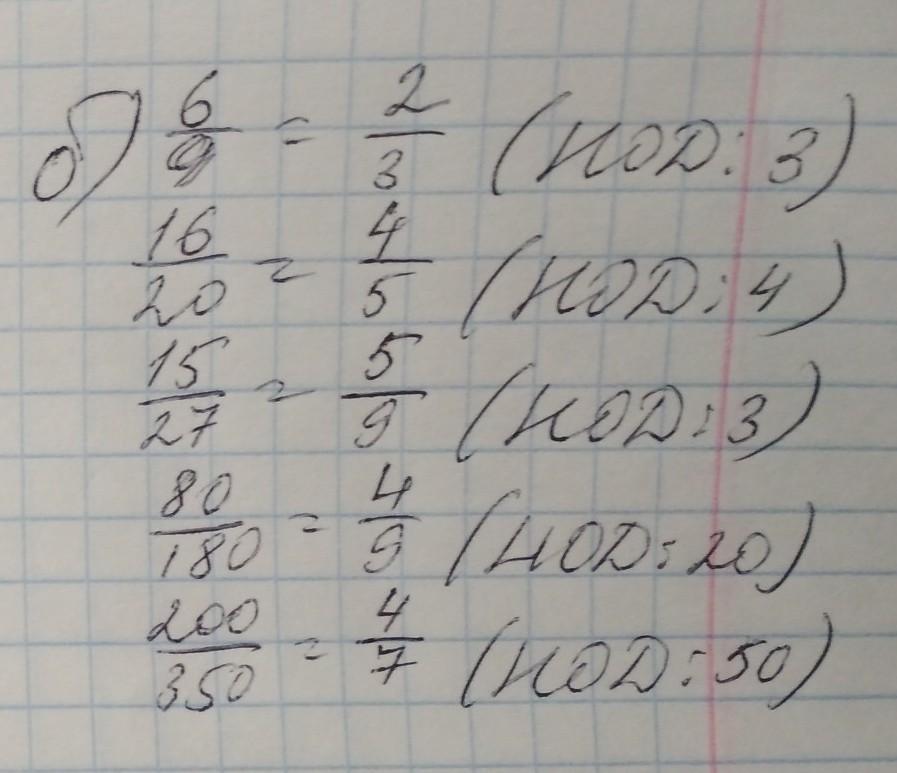 б) 6/9 = 2/3 (НОД: 3)
16/20 = 4/5 (НОД: 4)
15/27 = 5/9 (НОД: 3)
80/180 = 4/9 (НОД: 20)
200/350 = 4/7 (НОД: 50)